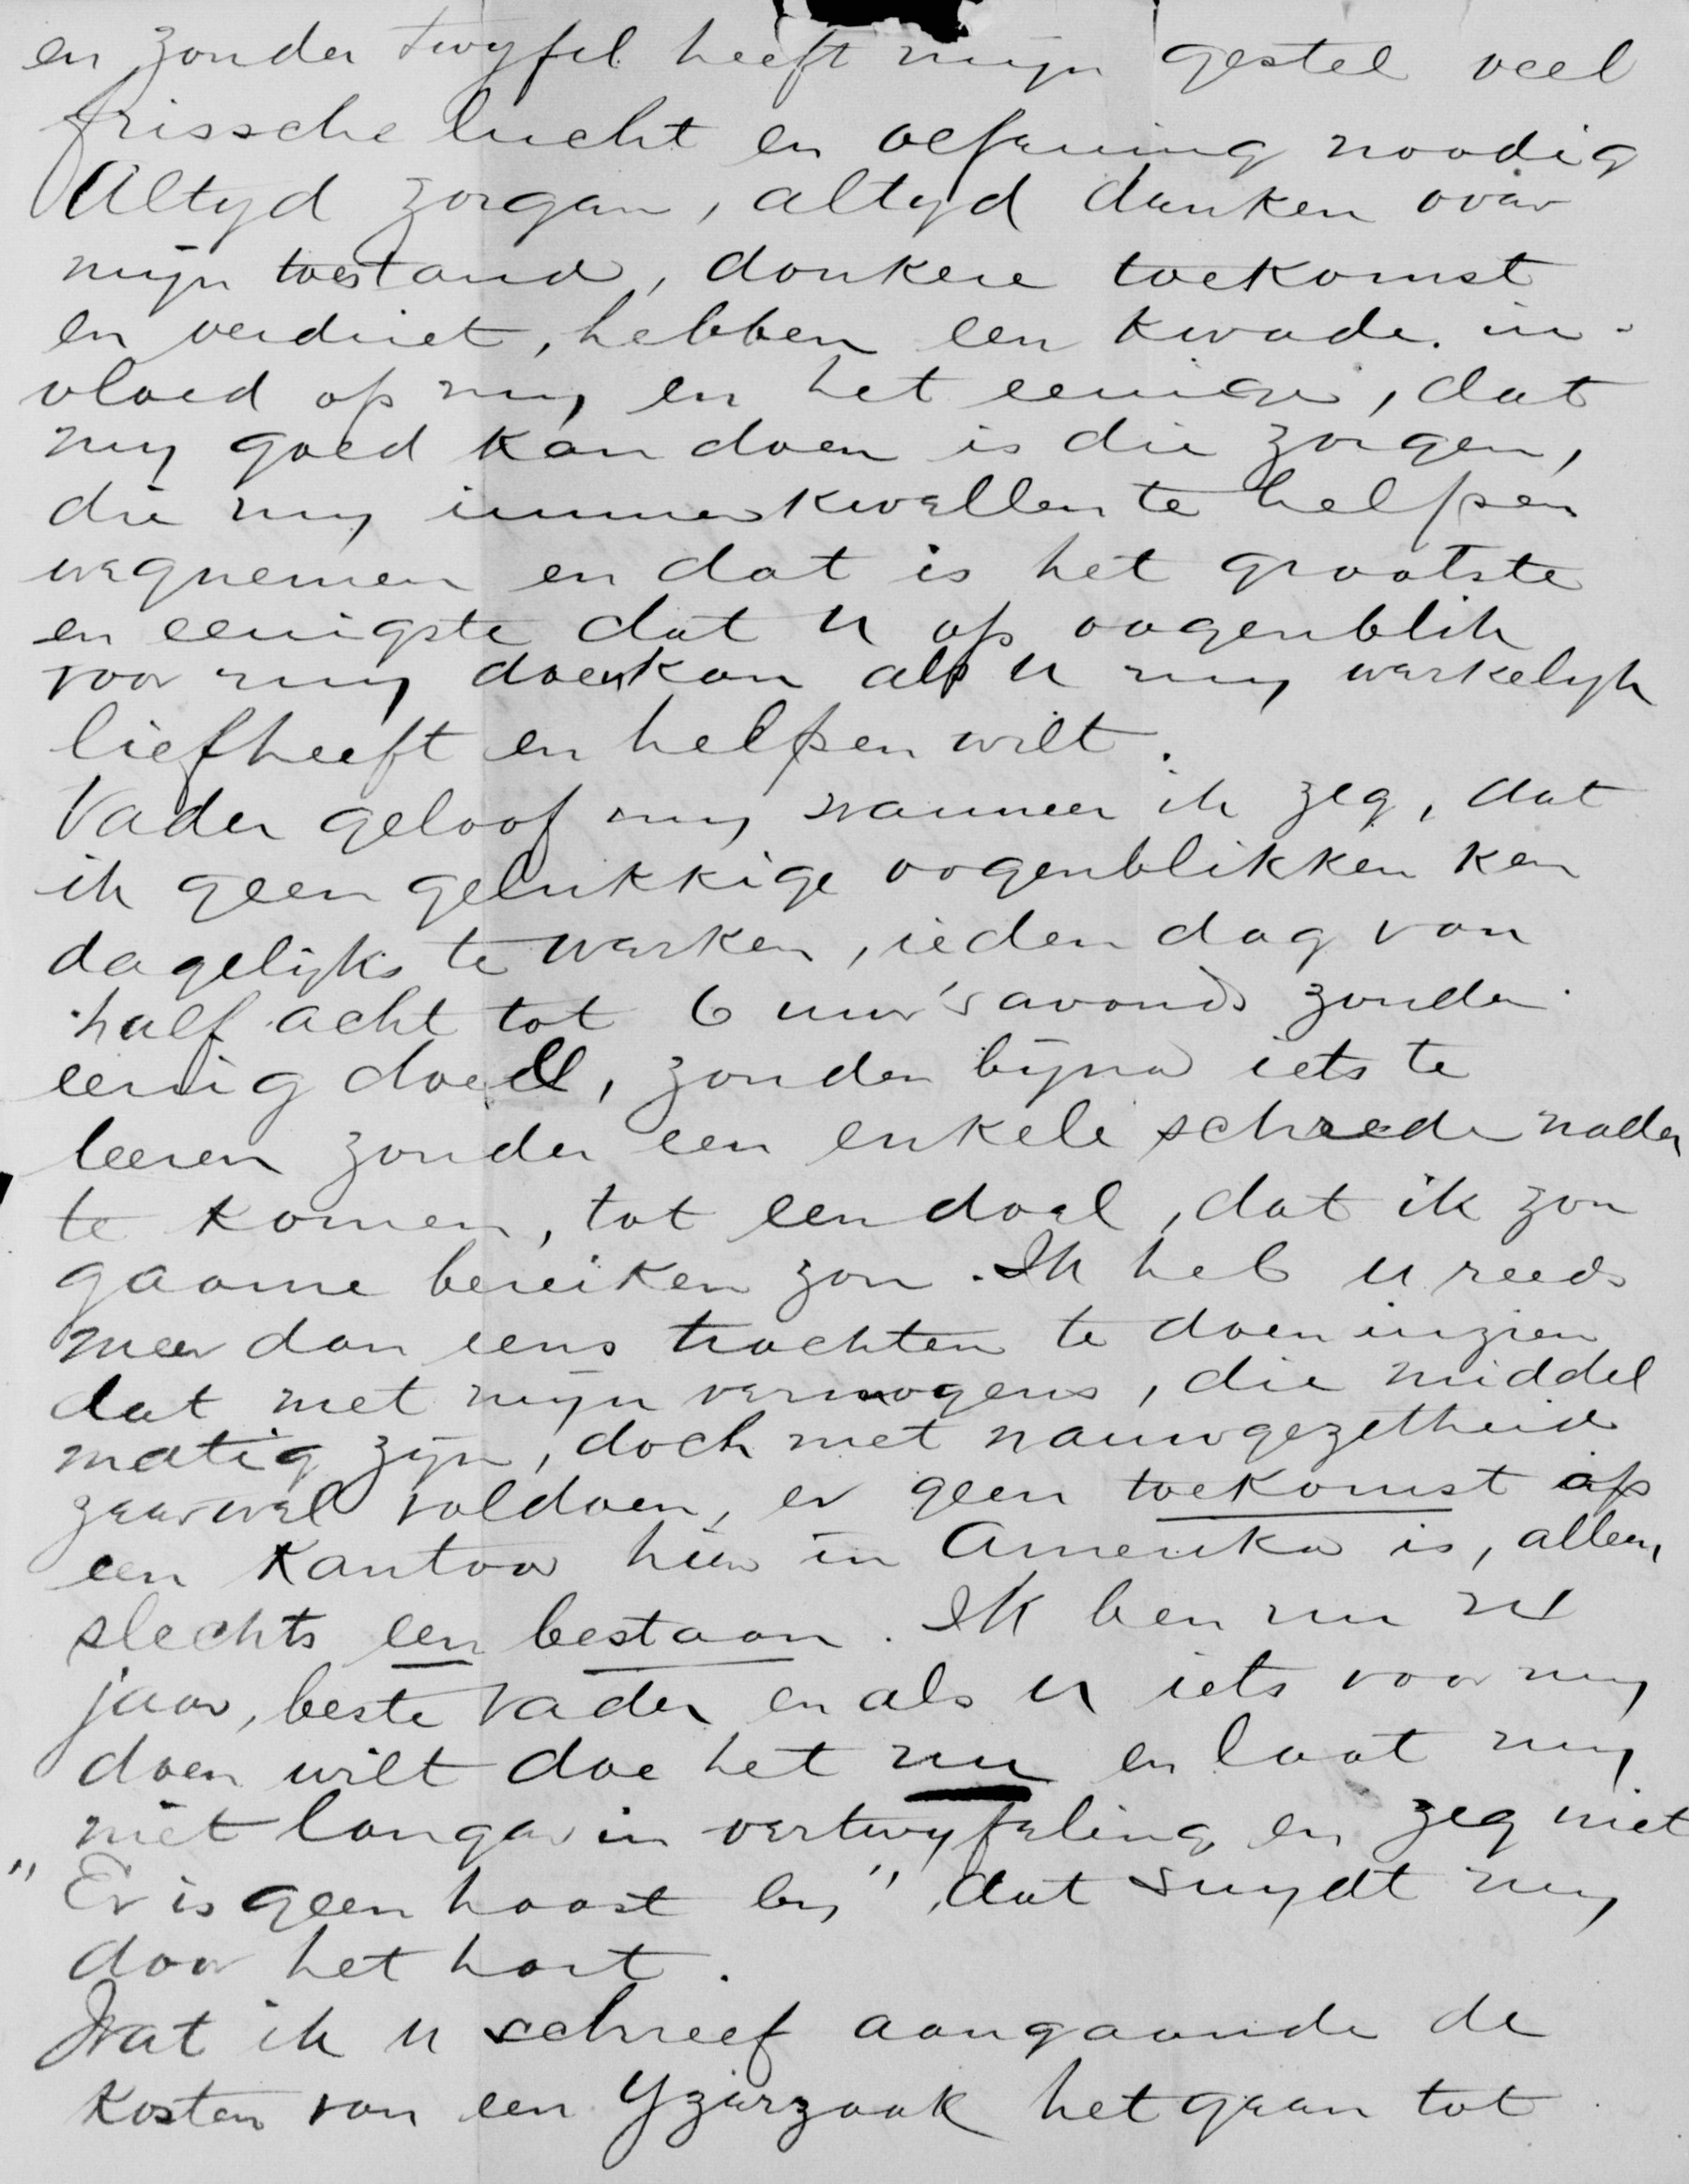 en zonder twyfel heeft mijn gestel veel
frissche lucht en oefening noodig
Altyd zorgen, altyd denken over
mijn toestand, donkere toekomst
en verdriet, hebben een kwade in-
vloed op my en het eenige, dat
my goed kan doen is die zorgen,
die my immer kwellen te helpen
wegnemen en dat is het grootste
en eenigste dat U op oogenblik
voor my doen kan als U my werkelyk
liefheeft en helpen wilt.
Vader geloof my wanneer ik zeg, dat
ik geen gelukkige oogenblikken ken
dagelijks te werken, ieden dag van
half acht tot 6 uur 's avonds zonder
eenig doel, zonder bijna iets te
leeren zonder een enkele schrede nader
te komen, tot een doel, dat ik zoo
gaarne bereiken zou. Ik heb u reeds
meer dan eens trachten te doen inzien
dat met mijn vermogens, die middel
matig zijn, doch met nauwgezetheid
zeer wel voldoen, er geen toekomst op
een Kantoor hier in Amerika is, alleen
slechts een bestaan. Ik ben nu
jaar, beste Vader en als U iets voor my
doen wilt doe het nu en laat my
niet langer in vertwyfeling en zeg niet
"Er is geen haast by", dat snydt my
door het hart.
Wat ik U schreef aangaande de
kosten van een Yzerzaak het geen tot